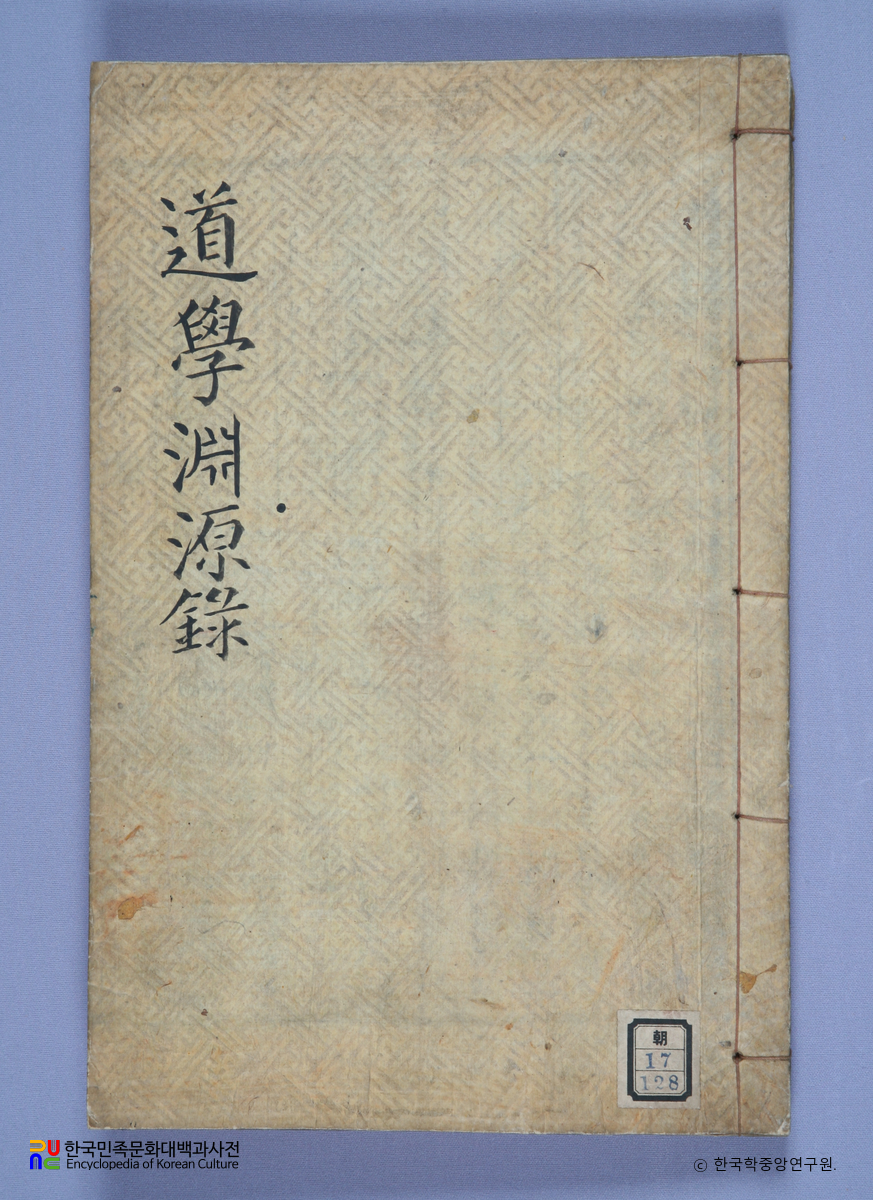 道學淵源錄
朝
17
128
한국민족문화대백과사전
Encyclopedia of Korean Culture
© 한국학중앙연구원.